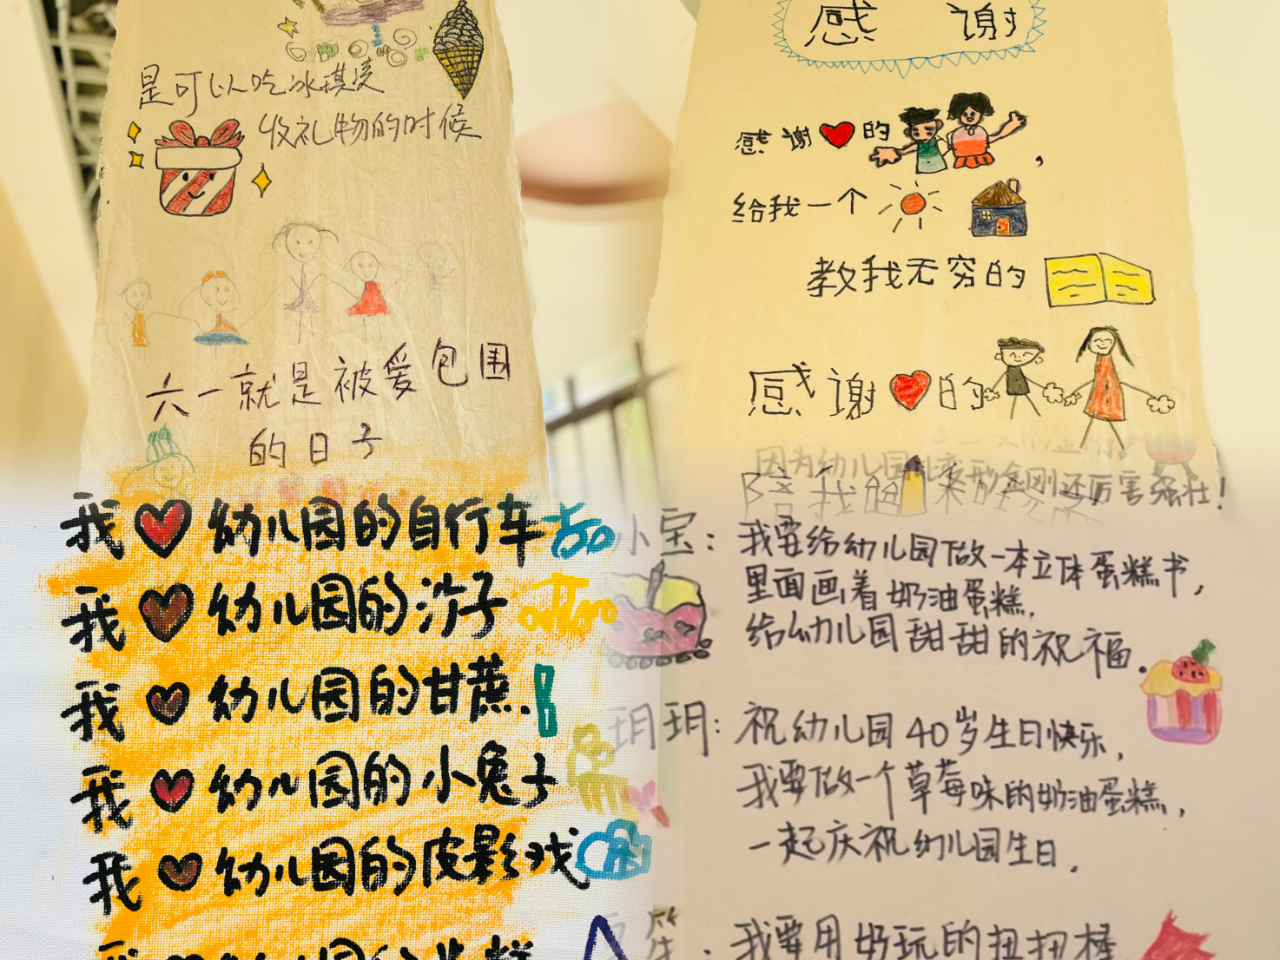 是可以吃冰琪凌
收礼物的时候
六一就是被爱包围
的日子
感 谢
感谢的
，
给我一个
教我无穷的
感谢的
因为幼儿园
金刚还厉害强壮！
陪我
我幼儿园的自行车
我幼儿园的沙子
我幼儿园的甘蔗.
我幼儿园的小兔子
我幼儿园的皮影戏
小宝：我要给幼儿园做一本立体蛋糕书，
里面画着奶油蛋糕，
给幼儿园甜甜的祝福．
玥玥：祝幼儿园40岁生日快乐，
我要做一个草莓味的奶油蛋糕，
一起庆祝幼儿园生日．
我要用奶玩的扭扭棒